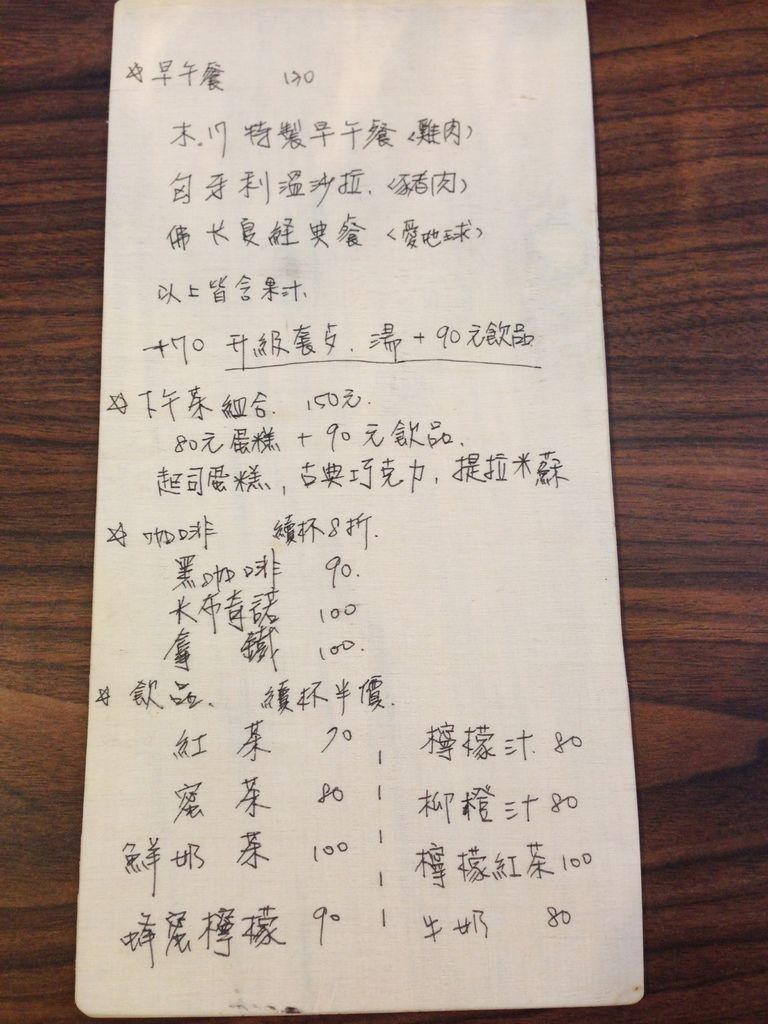 ☆早午餐 130
木.17 特製早午餐〈雞肉〉
匈牙利溫沙拉.〈豬肉〉
佛卡夏經典餐〈愛地球〉
以上皆含果汁.
+70 升級套. 湯+90元飲品
☆下午茶組合. 150元.
80元蛋糕+90元飲品.
起司蛋糕, 古典巧克力, 提拉米蘇
☆咖啡 續杯8折.
黑咖啡 90.
卡布奇諾 100
拿鐵 100.
☆飲品. 續杯半價.
紅茶 70
蜜茶 80
鮮奶茶 100
蜂蜜檸檬 90
檸檬汁 80
柳橙汁 80
檸檬紅茶 100
牛奶 80